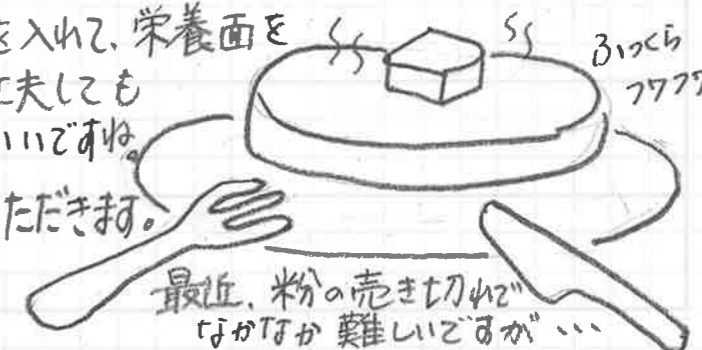 を入れて、栄養面を
工夫しても
いいですね。
ただきます。
ふっくら
フワフワ
最近、粉の売り切れで
なかなか難しいですが・・・